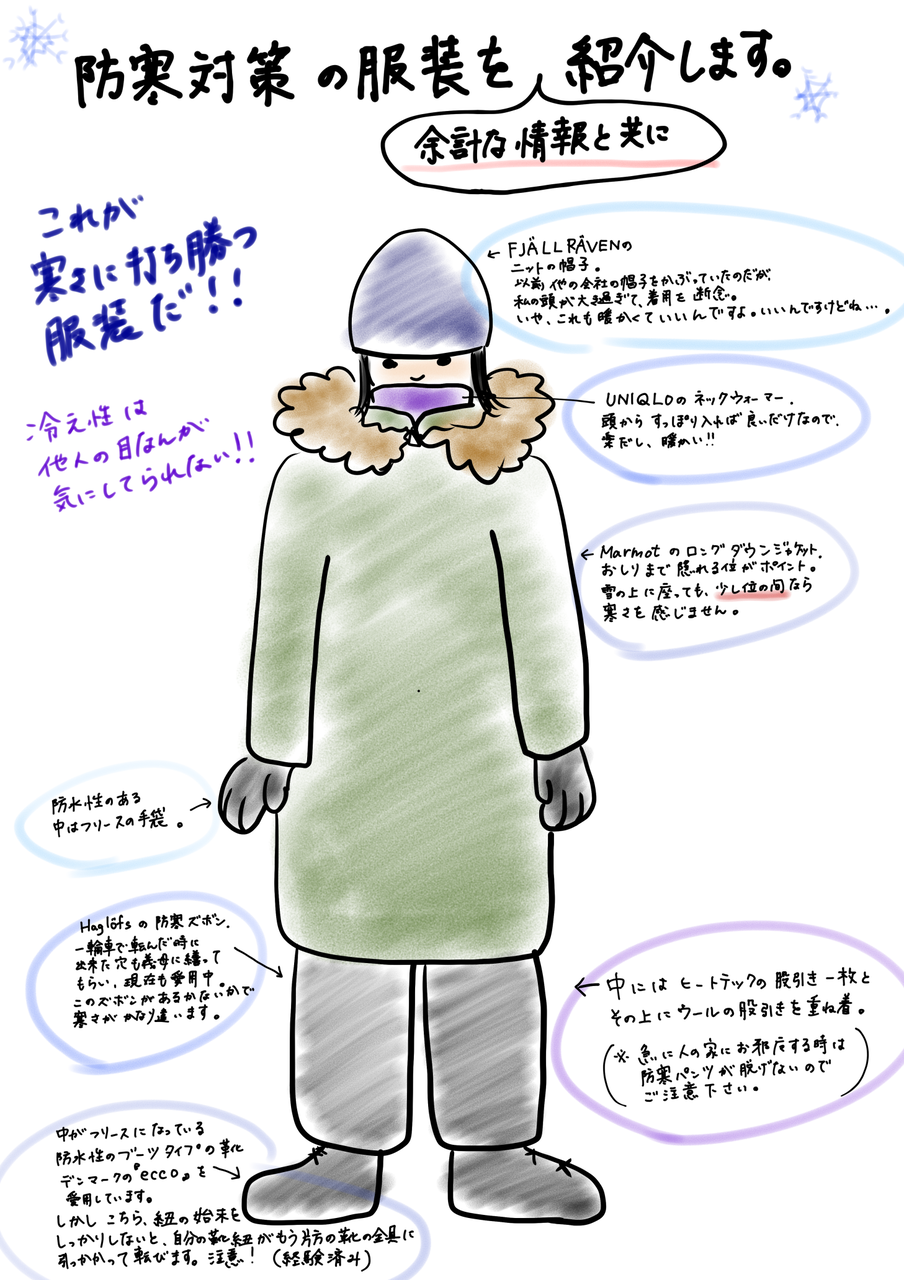 防寒対策の服装を紹介します。
余計な情報と共に
これが
寒さに打ち勝つ
服装だ!!
冷え性は
他人の目なんか
気にしてられない!!
← FJÄLLRÄVENの
ニットの帽子。
以前他の会社の帽子をかぶっていたのだが、
私の頭が大過ぎて、着用を断念。
いや、これも暖かくていいんですよ。いいんですけどね…。
UNIQLOのネックウォーマー。
頭からすっぽり入れば良いだけなので、
楽だし、暖かい!!
← Marmotのロングダウンジャケット。
おしりまで隠れる位がポイント。
雪の上に座っても、少し位の間なら
寒さを感じません。
防水性のある
中はフリースの手袋。
Haglöfsの防寒ズボン。
一輪車で転んだ時に
出来た穴も義母に繕って
もらい、現在も愛用中。
このズボンがあるかないかで
寒さがかなり違います。
← 中にはヒートテックの股引き一枚と
その上にウールの股引きを重ね着。
(※ 急に人の家にお邪魔する時は
防寒パンツが脱げないので
ご注意下さい。)
中がフリースになっている
防水性のブーツタイプの靴
デンマークの『ecco』を
愛用しています。
しかしこちら、紐の始末を
しっかりしないと、自分の靴紐がもう片方の靴の金具に
引っかかって転びます。注意! (経験済み)